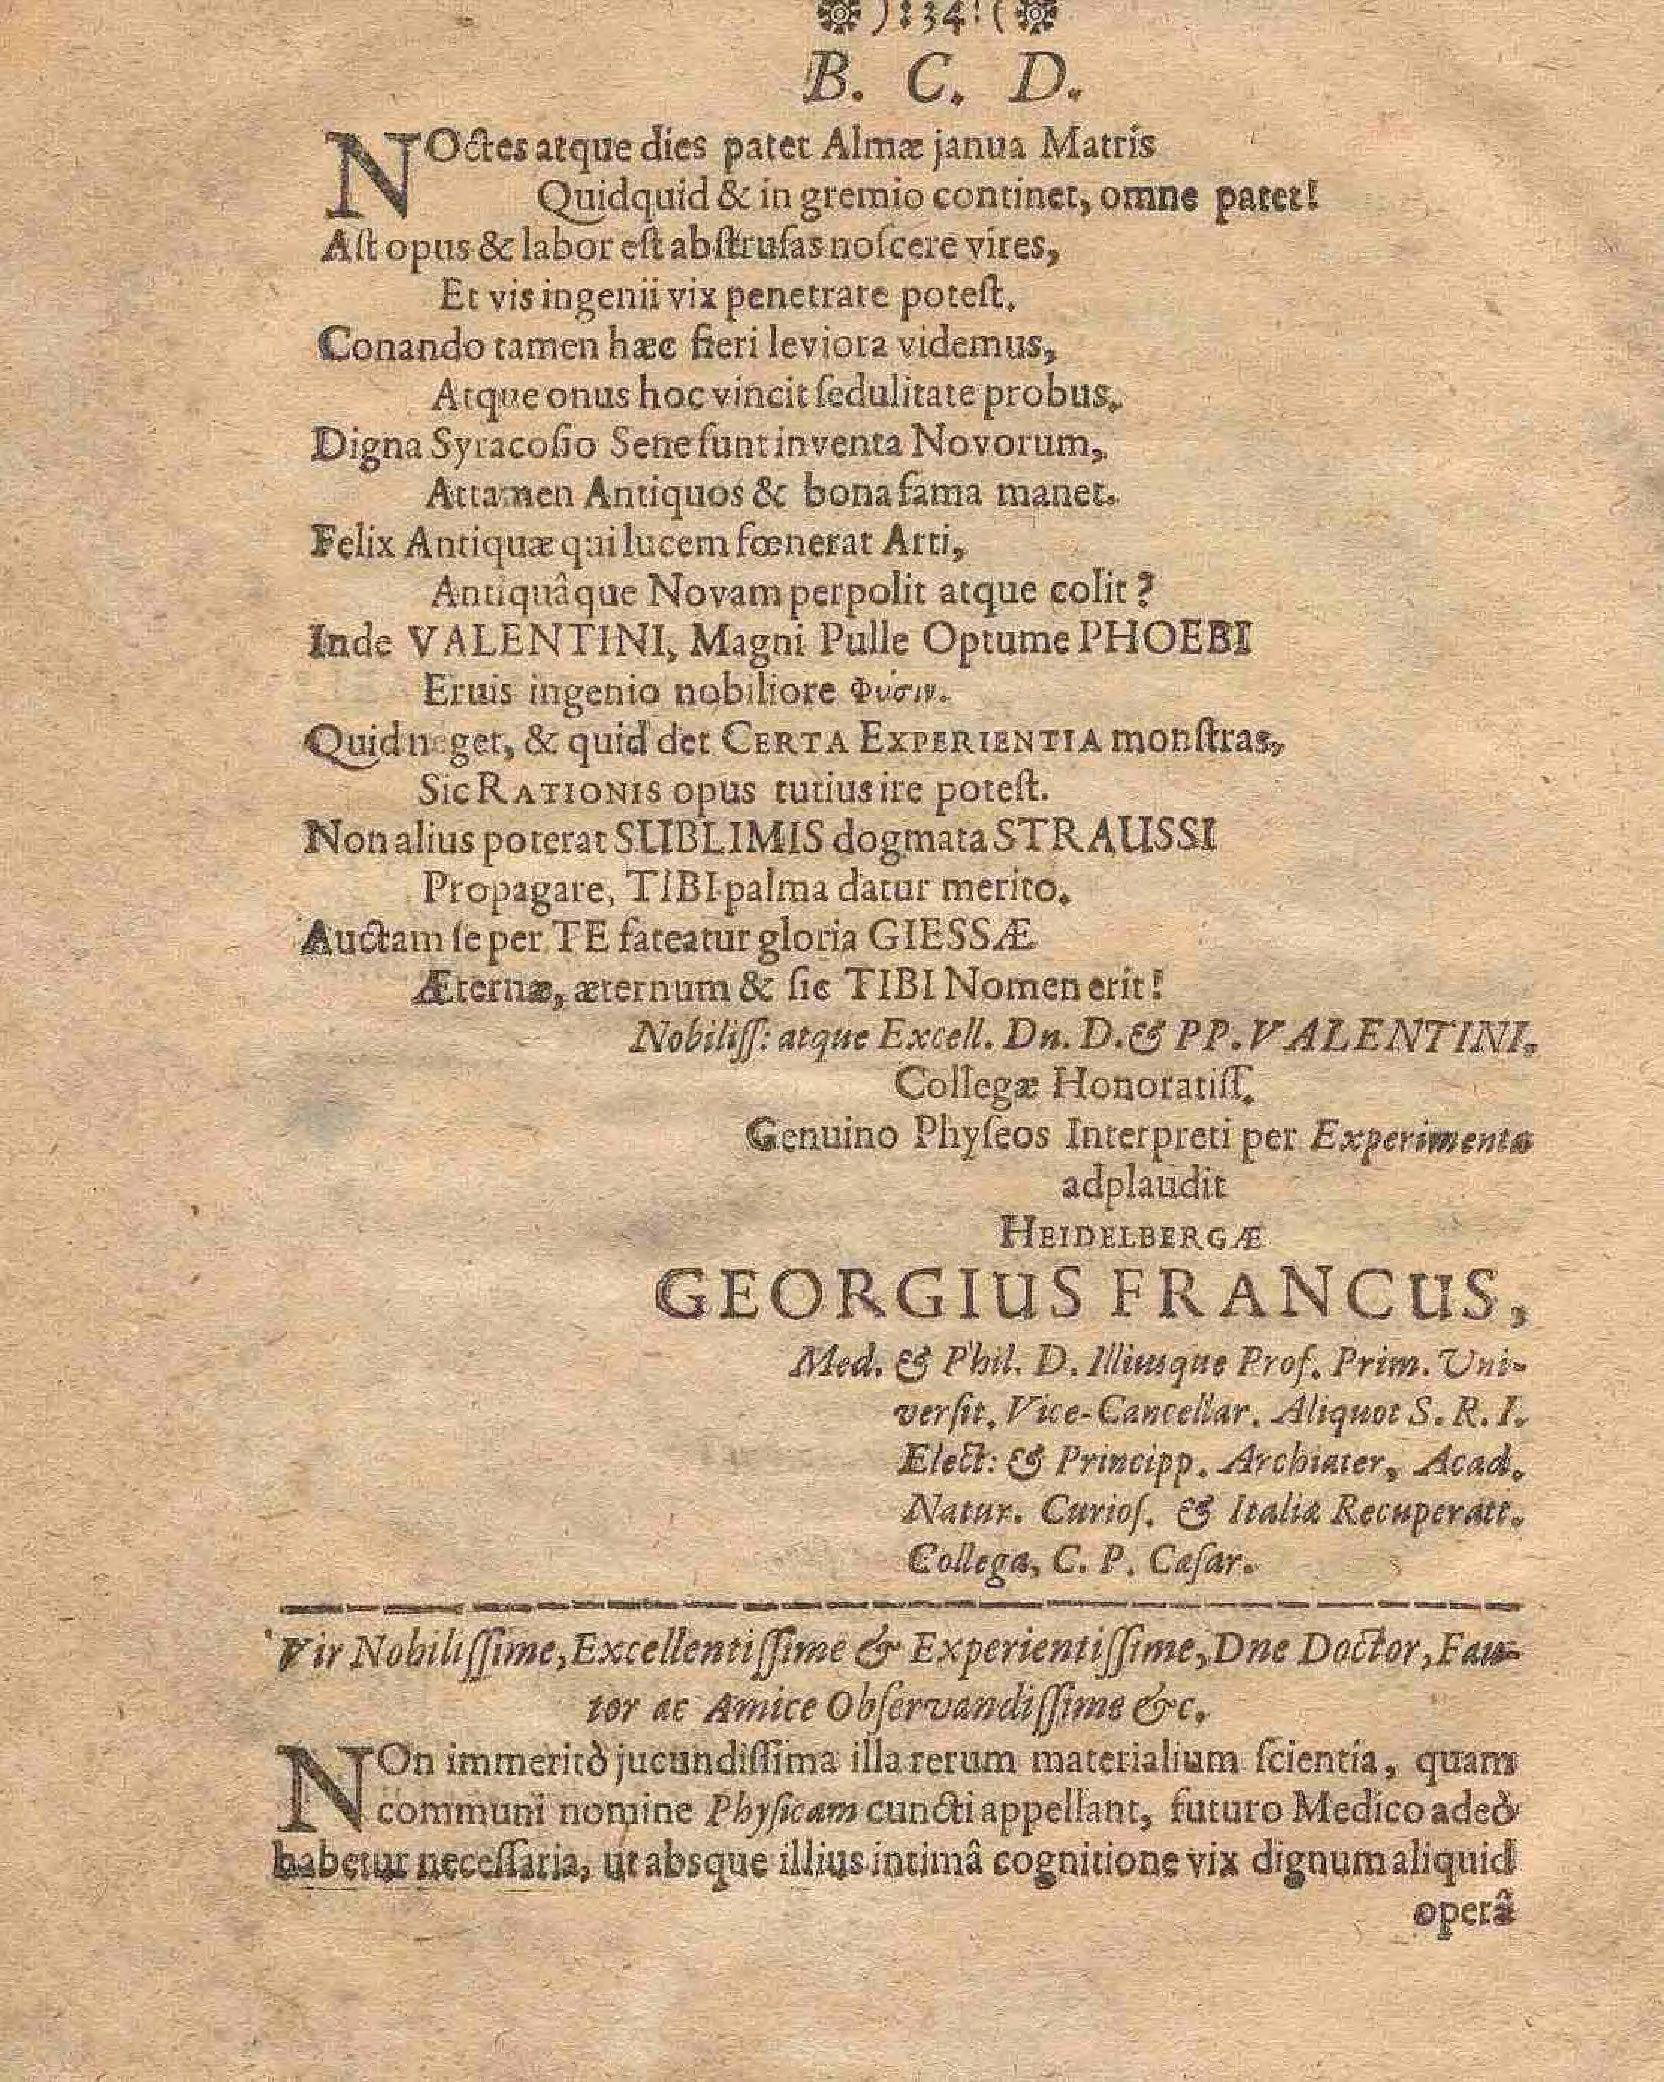 ):34:(
B. C. D.
NOctes atque dies patet Almæ janua Matris
Quidquid & in gremio continet, omne patet!
Aſt opus & labor eſt abſtruſas noſcere vires,
Et vis ingenii vix penetrare poteſt.
Conando tamen hæc fieri leviora videmus,
Atque onus hoc vincit ſedulitate probus.
Digna Syracoſio Sene ſunt inventa Novorum,
Attamen Antiquos & bona fama manet.
Felix Antiquæ qui lucem fœnerat Arti,
Antiquâque Novam perpolit atque colit?
Inde VALENTINI, Magni Pulle Optume PHOEBI
Eruis ingenio nobiliore Φύσιν.
Quid neget, & quid det CERTA EXPERIENTIA monſtras,
Sic RATIONIS opus tutius ire poteſt.
Non alius poterat SUBLIMIS dogmata STRAUSSI
Propagare, TIBI palma datur merito.
Auctam ſe per TE fateatur gloria GIESSÆ
Æternæ, æternum & ſic TIBI Nomen erit!
Nobiliſſ: atque Excell. Dn. D. & PP. VALENTINI,
Collegæ Honoratiſſ.
Genuino Phyſeos Interpreti per Experimenta
adplaudit
HEIDELBERGÆ
GEORGIUS FRANCUS,
Med. & Phil. D. Illiusque Prof. Prim. Uni-
verſit. Vice-Cancellar. Aliquot S. R. I.
Elect: & Principp. Archiater, Acad.
Natur. Curioſ. & Italiæ Recuperatt.
Collega, C. P. Cæſar.
Vir Nobiliſſime, Excellentiſſime & Experientiſſime, Dne Doctor, Fau-
tor ac Amice Obſervandiſſime &c.
NOn immeritò jucundiſſima illa rerum materialium ſcientia, quam
communi nomine Phyſicam cuncti appellant, futuro Medico adeò
habetur neceſſaria, ut absque illius intimâ cognitione vix dignum aliquid
operâ